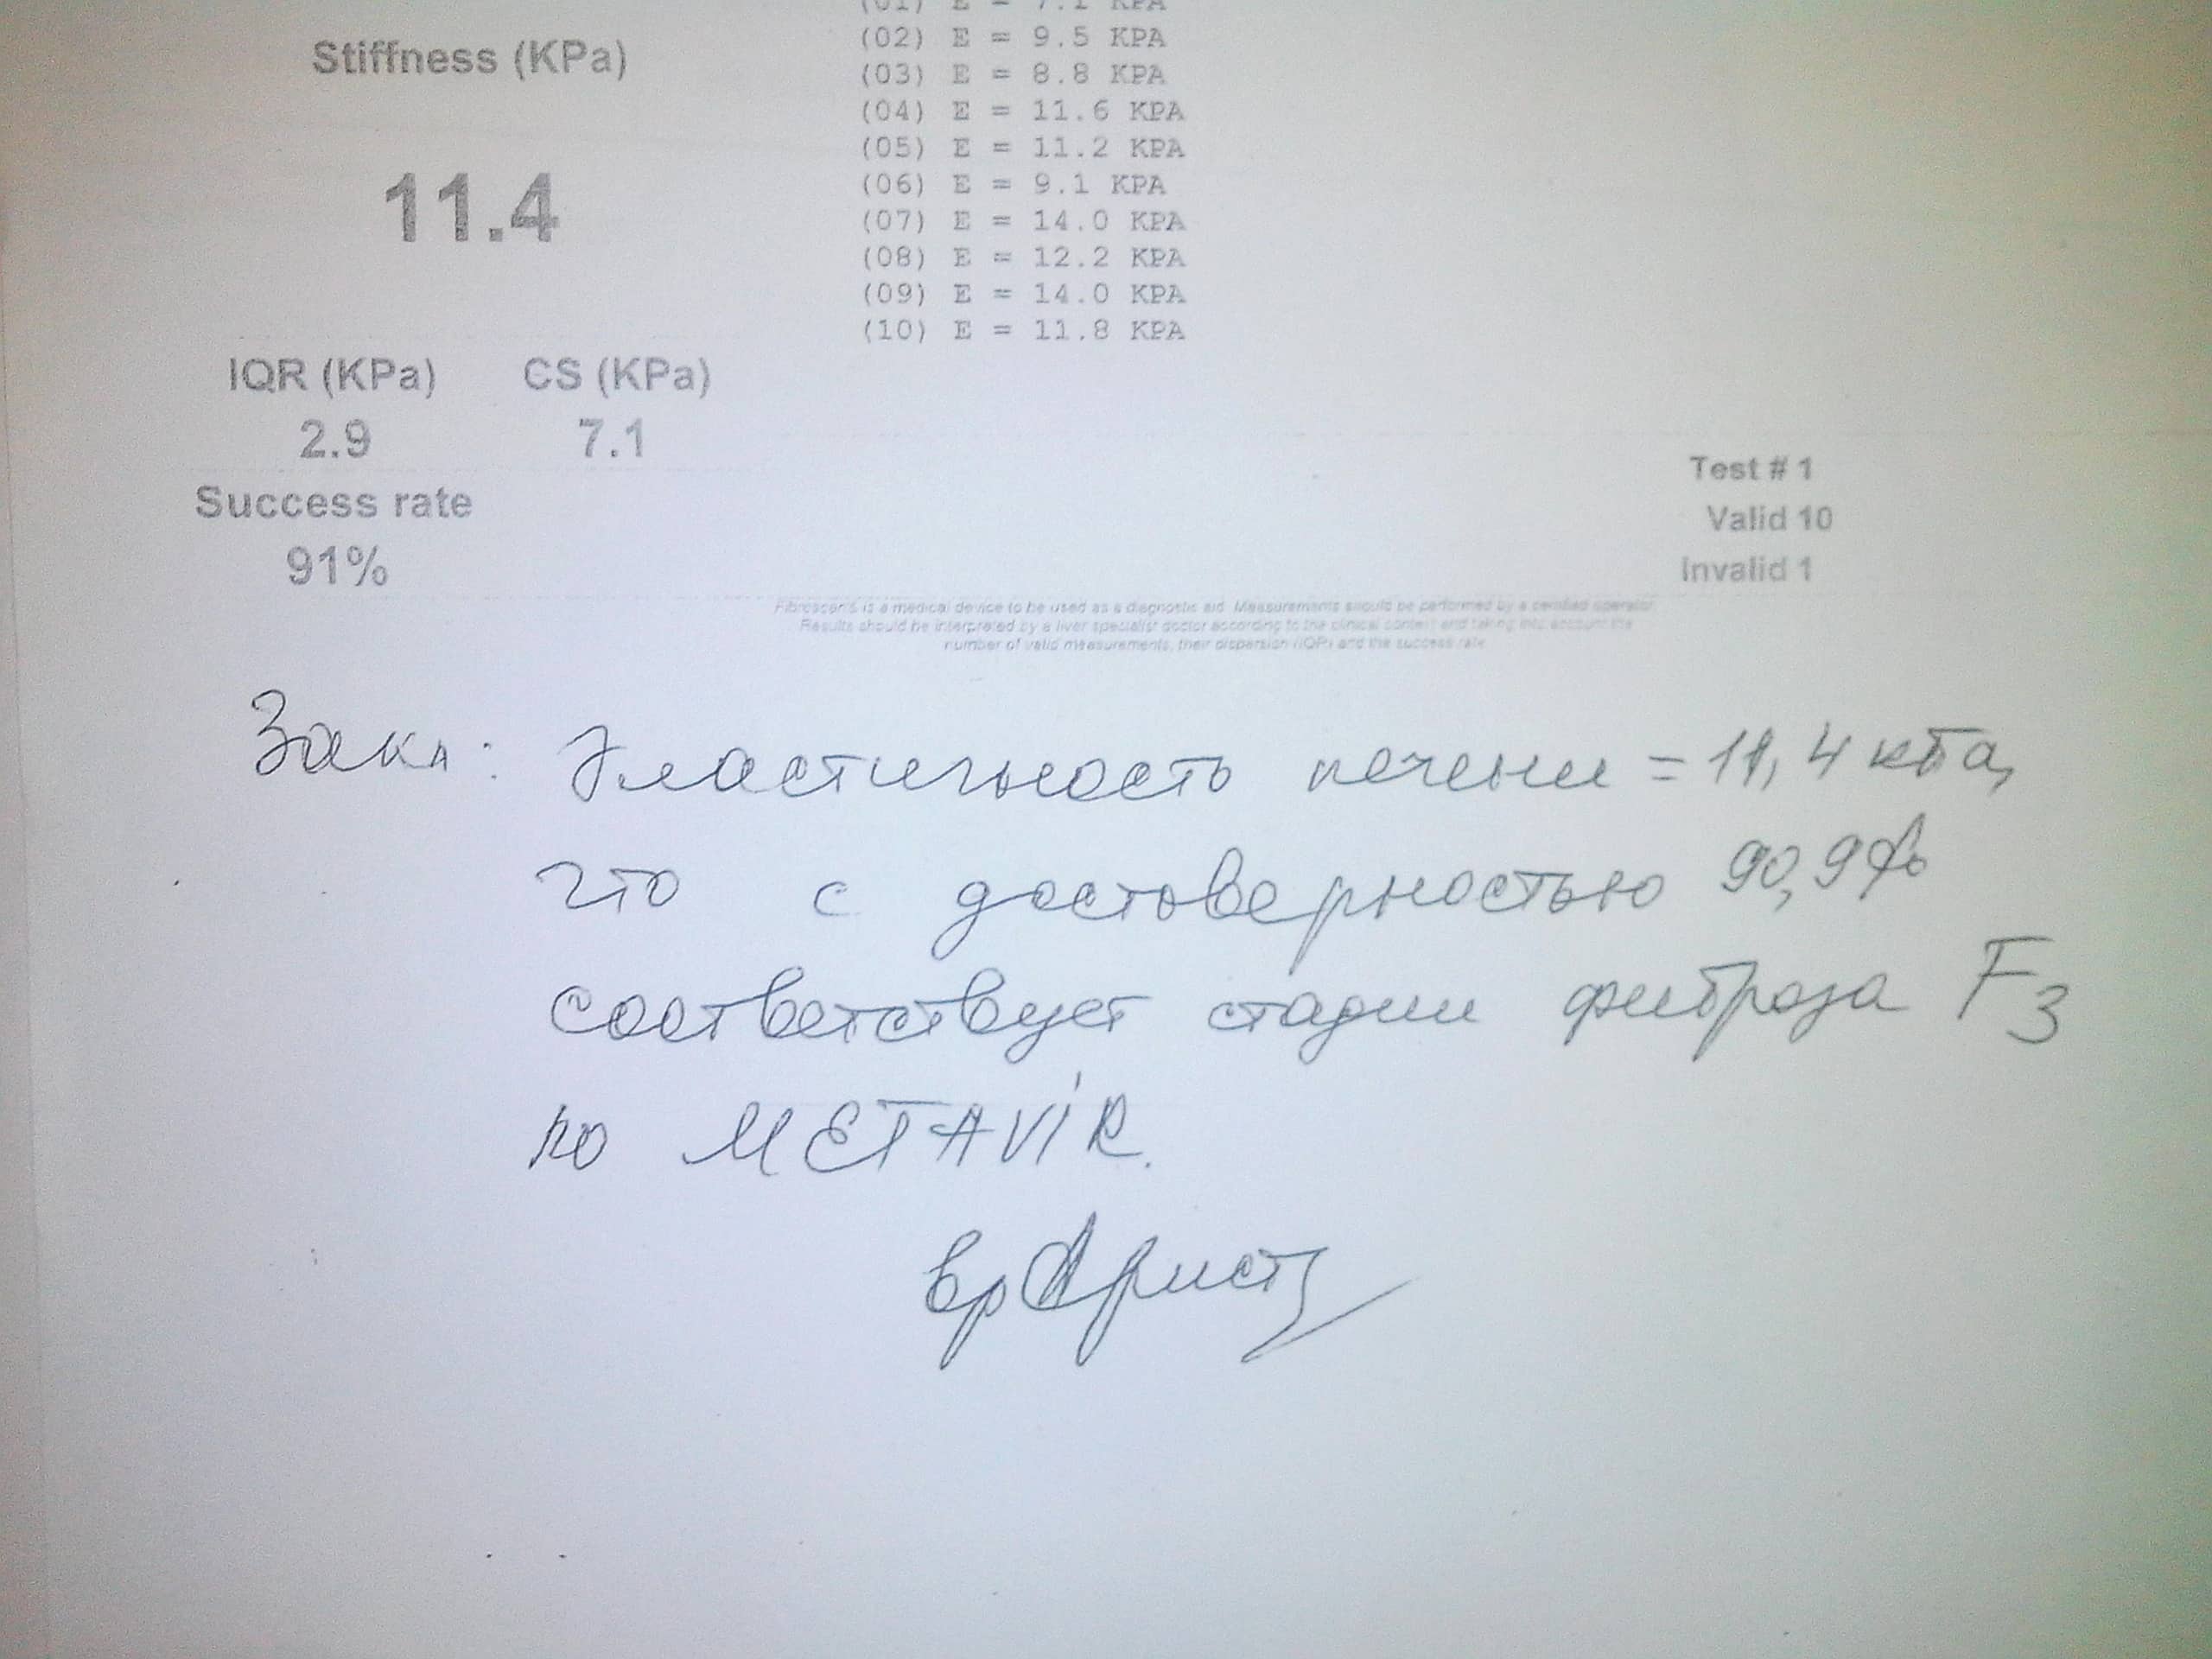 (01) E = 7.1 KPA
Stiffness (KPa)
(02) E = 9.5 KPA
(03) E = 8.8 KPA
(04) E = 11.6 KPA
(05) E = 11.2 KPA
11.4
(06) E = 9.1 KPA
(07) E = 14.0 KPA
(08) E = 12.2 KPA
(09) E = 14.0 KPA
(10) E = 11.8 KPA
IQR (KPa) CS (KPa)
2.9 7.1
Success rate
91%
Test # 1
Valid 10
Invalid 1
Fibroscan is a medical device to be used as a diagnostic aid. Measurements should be performed by a certified operator.
Results should be interpreted by a liver specialist doctor according to the clinical context and taking into account the
number of valid measurements, their dispersion (IQR) and the success rate
Закл: Эластичность печени = 11,4 кПа,
что с достоверностью 90,9%
соответствует стадии фиброза F3
по METAVIR.
вр